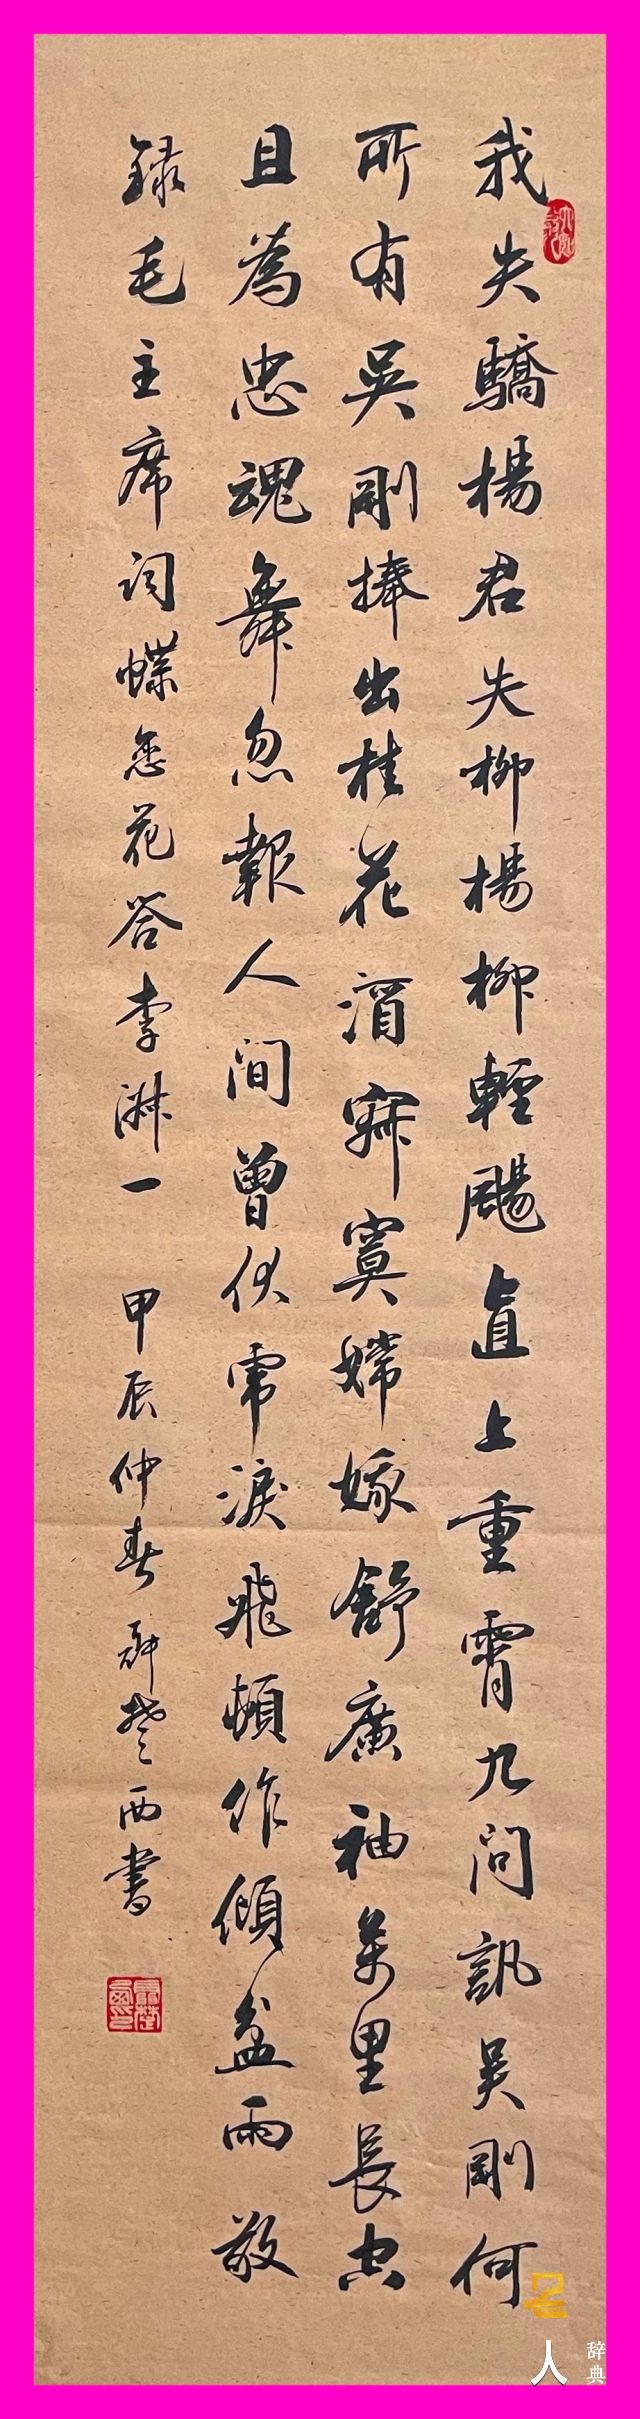 我失驕楊君失柳楊柳輕颺直上重霄九問訊吳剛何
所有吳剛捧出桂花酒寂寞嫦娥舒廣袖萬里長空
且為忠魂舞忽報人間曾伏虎淚飛頓作傾盆雨敬
錄毛主席詞蝶恋花答李淑一 甲辰仲春 楚西書
人
辞典